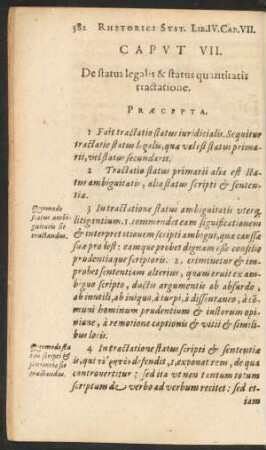 382 RHETORICI SYST. LIB.IV.CAP.VII.
CAPVT VII.
De status legalis & status quantitatis
tractatione.
PRÆCEPTA.
1 Fuit tractatio status iuridicialis. Sequitur
tractatio status legalis, qua vel est status prima-
rii, vel status secundarii.
2 Tractatio status primarii alia est sta-
tus ambiguitatis, alia status scripti & senten-
tiæ.
Quomodo
status ambi-
guitatis sit
tractandus.
3 In tractatione status ambiguitatis uterq;
litigantium. 1. commendet eam significationem
& interpretationem scripti ambigui, quæ causæ
suæ pro est: eamque probet dignam esse consilio
prudentiaque scriptoris. 2. criminetur & im-
probet sententiam alterius, quam eruit ex am-
biguo scripto, ducto argumentis ab absurdo,
ab inutili, ab iniquo, à turpi, à dissentaneo, à cō-
muni hominum prudentium & iustorum opi-
nione, à remotione captionis & vitii & simili-
bus locis.
Quomodo sta
tus scripti &
sententiæ sit
tractandus.
4 In tractatione status scripti & sententiæ
is, qui defendit, 1. exponat rem, de qua
controvertitur: sed ita ut non tantum totum
scriptum de verbo ad verbum recitet: sed et-
iam